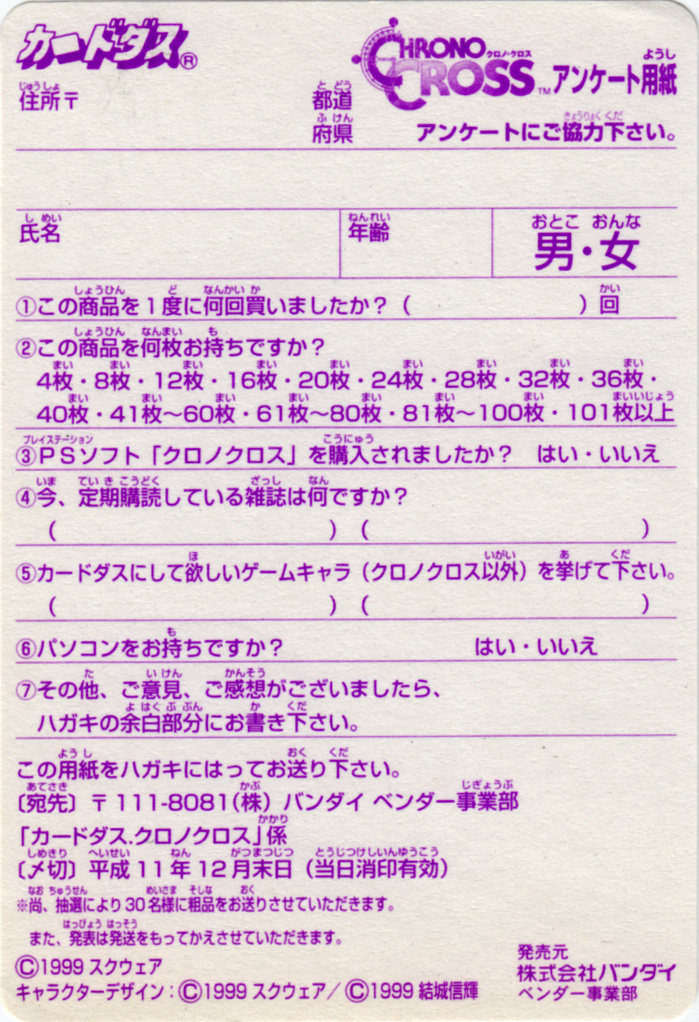 カードダス®
CHRONO CROSS クロノ・クロス ™ アンケート用紙
住所〒 都道府県
アンケートにご協力下さい。
氏名 年齢 男・女
①この商品を1度に何回買いましたか？（ ）回
②この商品を何枚お持ちですか？
4枚・8枚・12枚・16枚・20枚・24枚・28枚・32枚・36枚・
40枚・41枚〜60枚・61枚〜80枚・81枚〜100枚・101枚以上
③PSソフト「クロノクロス」を購入されましたか？ はい・いいえ
④今、定期購読している雑誌は何ですか？
（ ）（ ）
⑤カードダスにして欲しいゲームキャラ（クロノクロス以外）を挙げて下さい。
（ ）（ ）
⑥パソコンをお持ちですか？ はい・いいえ
⑦その他、ご意見、ご感想がございましたら、
ハガキの余白部分にお書き下さい。
この用紙をハガキにはってお送り下さい。
〔宛先〕〒111-8081（株）バンダイ ベンダー事業部
「カードダス.クロノクロス」係
〔〆切〕平成11年12月末日（当日消印有効）
※尚、抽選により30名様に粗品をお送りさせていただきます。
また、発表は発送をもってかえさせていただきます。
©1999 スクウェア
キャラクターデザイン：©1999 スクウェア／©1999 結城信輝
発売元
株式会社バンダイ
ベンダー事業部